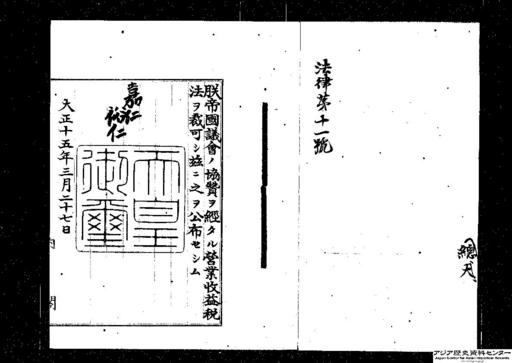 法律第十一號
朕帝國議會ノ協贊ヲ經タル營業收益稅
法ヲ裁可シ玆ニ之ヲ公布セシム
嘉仁
裕仁
天皇
御璽
大正十五年三月二十七日
內閣
アジア歴史資料センター
Japan Center for Asian Historical Records